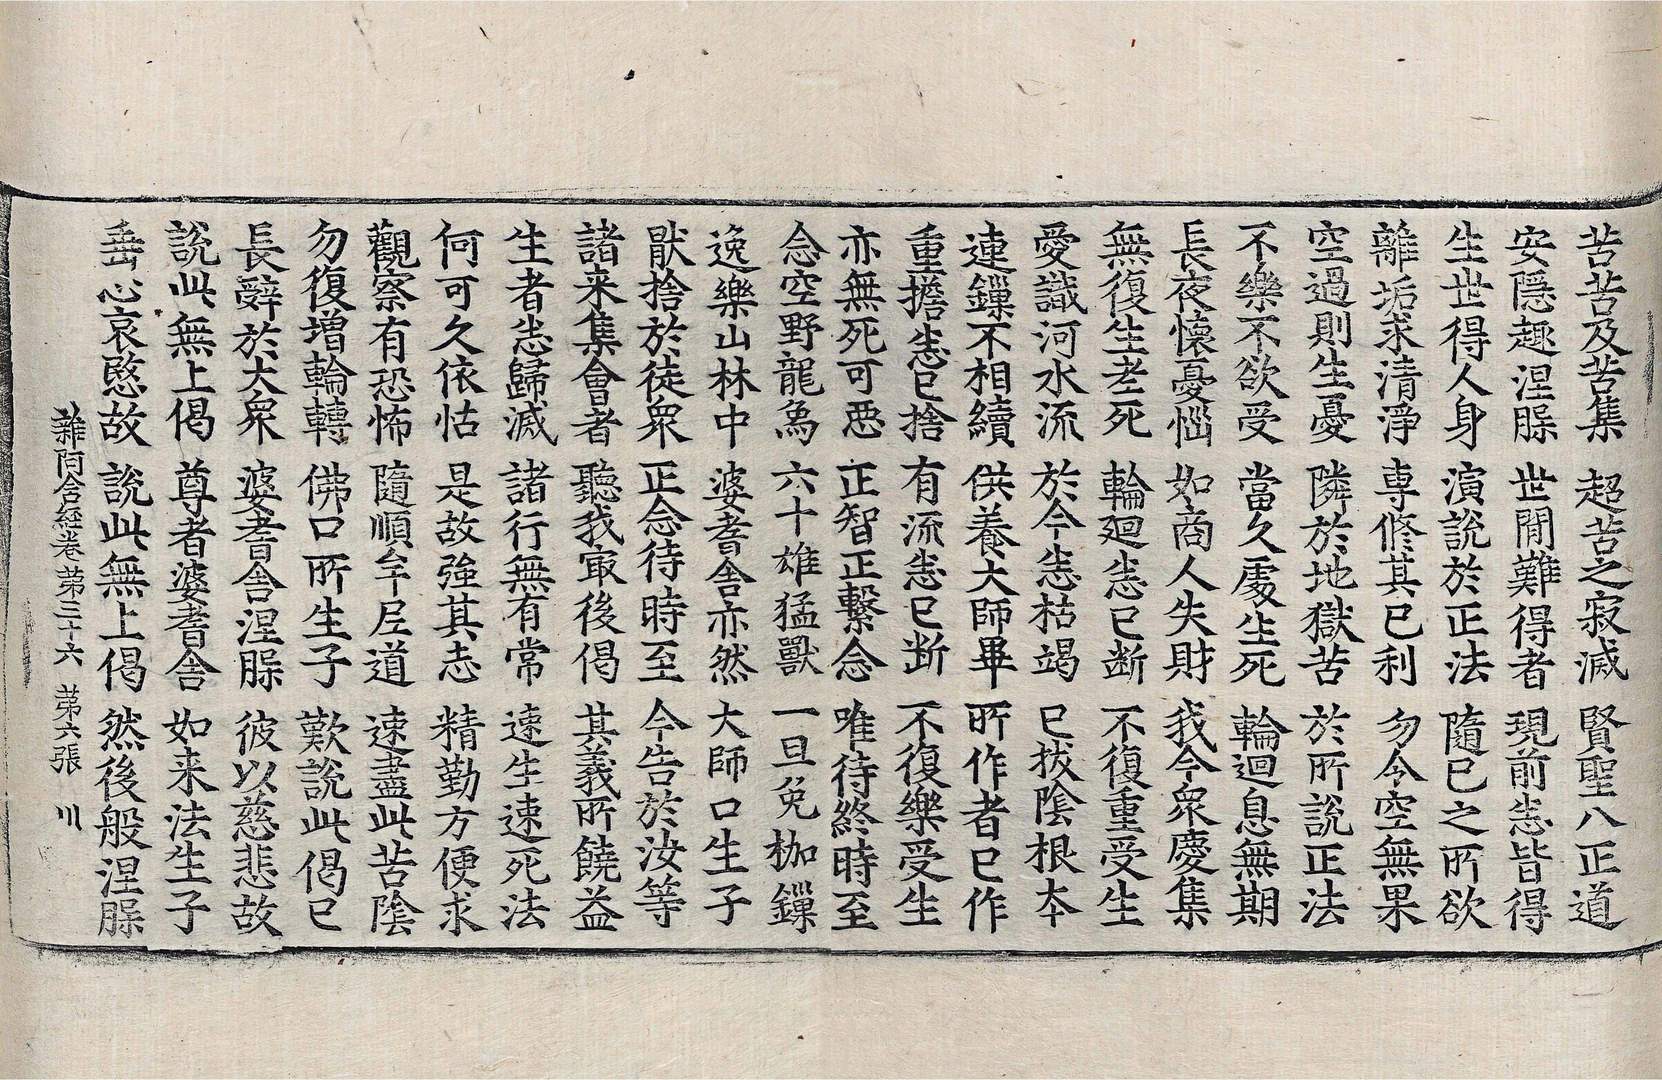 苦苦及苦集 超苦之寂滅 賢聖八正道
安隱趣涅槃 世閒難得者 現前悉皆得
生世得人身 演說於正法 隨已之所欲
離垢求清淨 專修其已利 勿令空無果
空過則生憂 隣於地獄苦 於所說正法
不樂不欲受 當久處生死 輪迴息無期
長夜懷憂惱 如商人失財 我今衆慶集
無復生老死 輪迴悉已断 不復重受生
愛識河水流 於今悉枯竭 已拔陰根本
連鏁不相續 供養大師畢 所作者已作
重擔悉已捨 有流悉已断 不復樂受生
亦無死可惡 正智正繫念 唯待終時至
念空野龍象 六十雄猛獸 一旦免枷鏁
逸樂山林中 婆耆舍亦然 大師口生子
猒捨於徒衆 正念待時至 今告於汝等
諸来集會者 聽我冣後偈 其義所饒益
生者悉歸滅 諸行無有常 速生速死法
何可久依怙 是故強其志 精勤方便求
觀察有恐怖 隨順牟尼道 速盡此苦陰
勿復增輪轉 佛口所生子 歎說此偈已
長辭於大衆 婆耆舍涅槃 彼以慈悲故
說此無上偈 尊者婆耆舍 如来法生子
垂心哀愍故 說此無上偈 然後般涅槃
雜阿含經卷第三十六 第六張 川